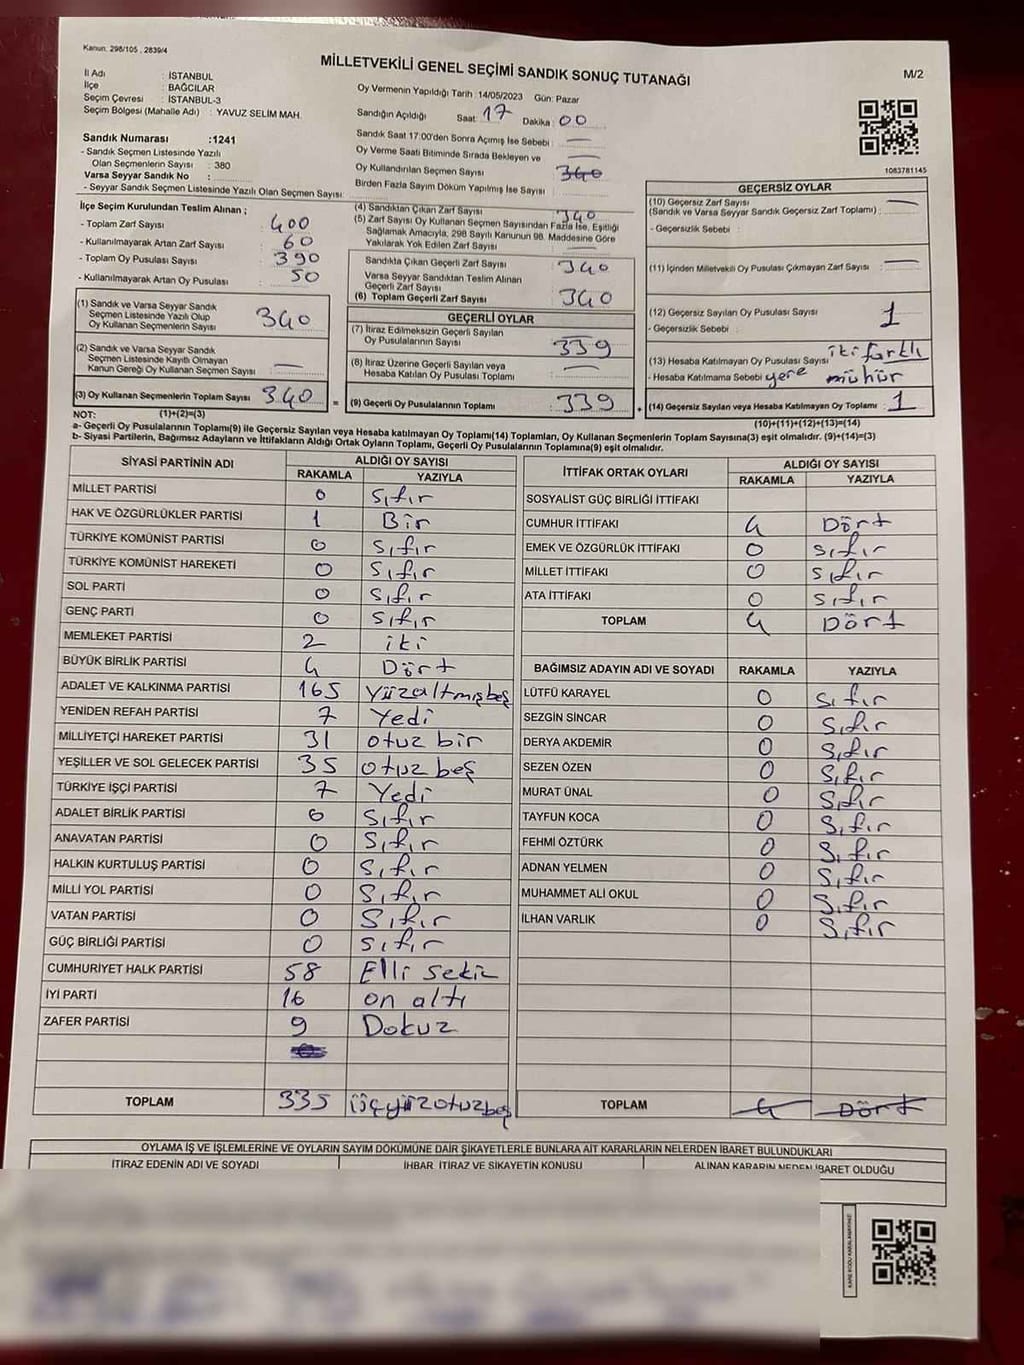 Kanun: 298/105 , 2839/4
MİLLETVEKİLİ GENEL SEÇİMİ SANDIK SONUÇ TUTANAĞI
M/2
İl Adı : İSTANBUL
İlçe : BAĞCILAR
Seçim Çevresi : İSTANBUL-3
Seçim Bölgesi (Mahalle Adı) : YAVUZ SELİM MAH.
Sandık Numarası :1241
- Sandık Seçmen Listesinde Yazılı
Olan Seçmenlerin Sayısı : 380
Varsa Seyyar Sandık No :
- Seyyar Sandık Seçmen Listesinde Yazılı Olan Seçmen Sayısı:
Oy Vermenin Yapıldığı Tarih :14/05/2023 Gün: Pazar
Sandığın Açıldığı Saat: 17 Dakika : 00
Sandık Saat 17:00'den Sonra Açımış İse Sebebi : —
Oy Verme Saati Bitiminde Sırada Bekleyen ve
Oy Kullandırılan Seçmen Sayısı : 340
Birden Fazla Sayım Döküm Yapılmış İse Sayısı : —
1083781145
İlçe Seçim Kurulundan Teslim Alınan ;
- Toplam Zarf Sayısı : 400
- Kullanılmayarak Artan Zarf Sayısı : 60
- Toplam Oy Pusulası Sayısı : 390
- Kullanılmayarak Artan Oy Pusulası : 50
(1) Sandık ve Varsa Seyyar Sandık
Seçmen Listesinde Yazılı Olup
Oy Kullanan Seçmenlerin Sayısı : 340
(2) Sandık ve Varsa Seyyar Sandık
Seçmen Listesinde Kayıtlı Olmayan
Kanun Gereği Oy Kullanan Seçmen Sayısı : —
(3) Oy Kullanan Seçmenlerin Toplam Sayısı : 340
(4) Sandıktan Çıkan Zarf Sayısı : 340
(5) Zarf Sayısı Oy Kullanan Seçmen Sayısından Fazla İse, Eşitliği
Sağlamak Amacıyla, 298 Sayılı Kanunun 98. Maddesine Göre
Yakılarak Yok Edilen Zarf Sayısı : —
Sandıkta Çıkan Geçerli Zarf Sayısı : 340
Varsa Seyyar Sandıktan Teslim Alınan
Geçerli Zarf Sayısı :
(6) Toplam Geçerli Zarf Sayısı : 340
GEÇERLİ OYLAR
(7) İtiraz Edilmeksizin Geçerli Sayılan
Oy Pusulalarının Sayısı : 339
(8) İtiraz Üzerine Geçerli Sayılan veya
Hesaba Katılan Oy Pusulası Toplamı : —
= (9) Geçerli Oy Pusulalarının Toplamı : 339 +
GEÇERSİZ OYLAR
(10) Geçersiz Zarf Sayısı : —
(Sandık ve Varsa Seyyar Sandık Geçersiz Zarf Toplamı)
- Geçersizlik Sebebi :
(11) İçinden Milletvekili Oy Pusulası Çıkmayan Zarf Sayısı : —
(12) Geçersiz Sayılan Oy Pusulası Sayısı : 1
- Geçersizlik Sebebi :
(13) Hesaba Katılmayan Oy Pusulası Sayısı : iki farklı
- Hesaba Katılmama Sebebi : yere mühür
(14) Geçersiz Sayılan veya Hesaba Katılmayan Oy Toplamı : 1
NOT: (1)+(2)=(3)
(10)+(11)+(12)+(13)=(14)
a- Geçerli Oy Pusulalarının Toplamı(9) ile Geçersiz Sayılan veya Hesaba katılmayan Oy Toplamı(14) Toplamları, Oy Kullanan Seçmenlerin Toplam Sayısına(3) eşit olmalıdır. (9)+(14)=(3)
b- Siyasi Partilerin, Bağımsız Adayların ve İttifakların Aldığı Ortak Oyların Toplamı, Geçerli Oy Pusulalarının Toplamına(9) eşit olmalıdır.
SİYASİ PARTİNİN ADI ALDIĞI OY SAYISI
RAKAMLA YAZIYLA
MİLLET PARTİSİ 0 Sıfır
HAK VE ÖZGÜRLÜKLER PARTİSİ 1 Bir
TÜRKİYE KOMÜNİST PARTİSİ 0 Sıfır
TÜRKİYE KOMÜNİST HAREKETİ 0 Sıfır
SOL PARTİ 0 Sıfır
GENÇ PARTİ 0 Sıfır
MEMLEKET PARTİSİ 2 iki
BÜYÜK BİRLİK PARTİSİ 4 Dört
ADALET VE KALKINMA PARTİSİ 165 Yüzaltmışbeş
YENİDEN REFAH PARTİSİ 7 Yedi
MİLLİYETÇİ HAREKET PARTİSİ 31 otuz bir
YEŞİLLER VE SOL GELECEK PARTİSİ 35 otuz beş
TÜRKİYE İŞÇİ PARTİSİ 7 Yedi
ADALET BİRLİK PARTİSİ 0 Sıfır
ANAVATAN PARTİSİ 0 Sıfır
HALKIN KURTULUŞ PARTİSİ 0 Sıfır
MİLLİ YOL PARTİSİ 0 Sıfır
VATAN PARTİSİ 0 Sıfır
GÜÇ BİRLİĞİ PARTİSİ 0 sıfır
CUMHURİYET HALK PARTİSİ 58 Elli sekiz
İYİ PARTİ 16 on altı
ZAFER PARTİSİ 9 Dokuz
TOPLAM 335 üçyüzotuzbeş
İTTİFAK ORTAK OYLARI ALDIĞI OY SAYISI
RAKAMLA YAZIYLA
SOSYALİST GÜÇ BİRLİĞİ İTTİFAKI
CUMHUR İTTİFAKI 4 Dört
EMEK VE ÖZGÜRLÜK İTTİFAKI 0 sıfır
MİLLET İTTİFAKI 0 sıfır
ATA İTTİFAKI 0 sıfır
TOPLAM 4 Dört
BAĞIMSIZ ADAYIN ADI VE SOYADI RAKAMLA YAZIYLA
LÜTFÜ KARAYEL 0 Sıfır
SEZGİN SİNCAR 0 Sıfır
DERYA AKDEMİR 0 Sıfır
SEZEN ÖZEN 0 Sıfır
MURAT ÜNAL 0 Sıfır
TAYFUN KOCA 0 Sıfır
FEHMİ ÖZTÜRK 0 Sıfır
ADNAN YELMEN 0 Sıfır
MUHAMMET ALİ OKUL 0 Sıfır
İLHAN VARLIK 0 Sıfır
TOPLAM 4 Dört
OYLAMA İŞ VE İŞLEMLERİNE VE OYLARIN SAYIM DÖKÜMÜNE DAİR ŞİKAYETLERLE BUNLARA AİT KARARLARIN NELERDEN İBARET BULUNDUKLARI
İTİRAZ EDENİN ADI VE SOYADI İHBAR, İTİRAZ VE ŞİKAYETİN KONUSU ALINAN KARARIN NEDEN İBARET OLDUĞU
KARE KODU KARALAMAYINIZ!